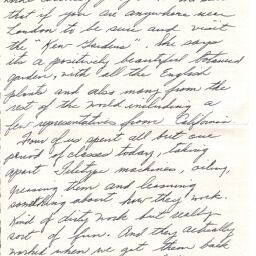 that if you are anywhere near
London to be sure and visit
the "Kew Gardens". She says
its a positively beautiful botanical
garden, with all the English
plants and also many from the
rest of the world including a
few representatives from California.
Four of us spent all but one
period of classes today, taking
apart Teletype machines, oiling,
greasing them and learning
something about how they work.
Kind of dirty work but really
sort of fun. And they actually
worked when we got them back